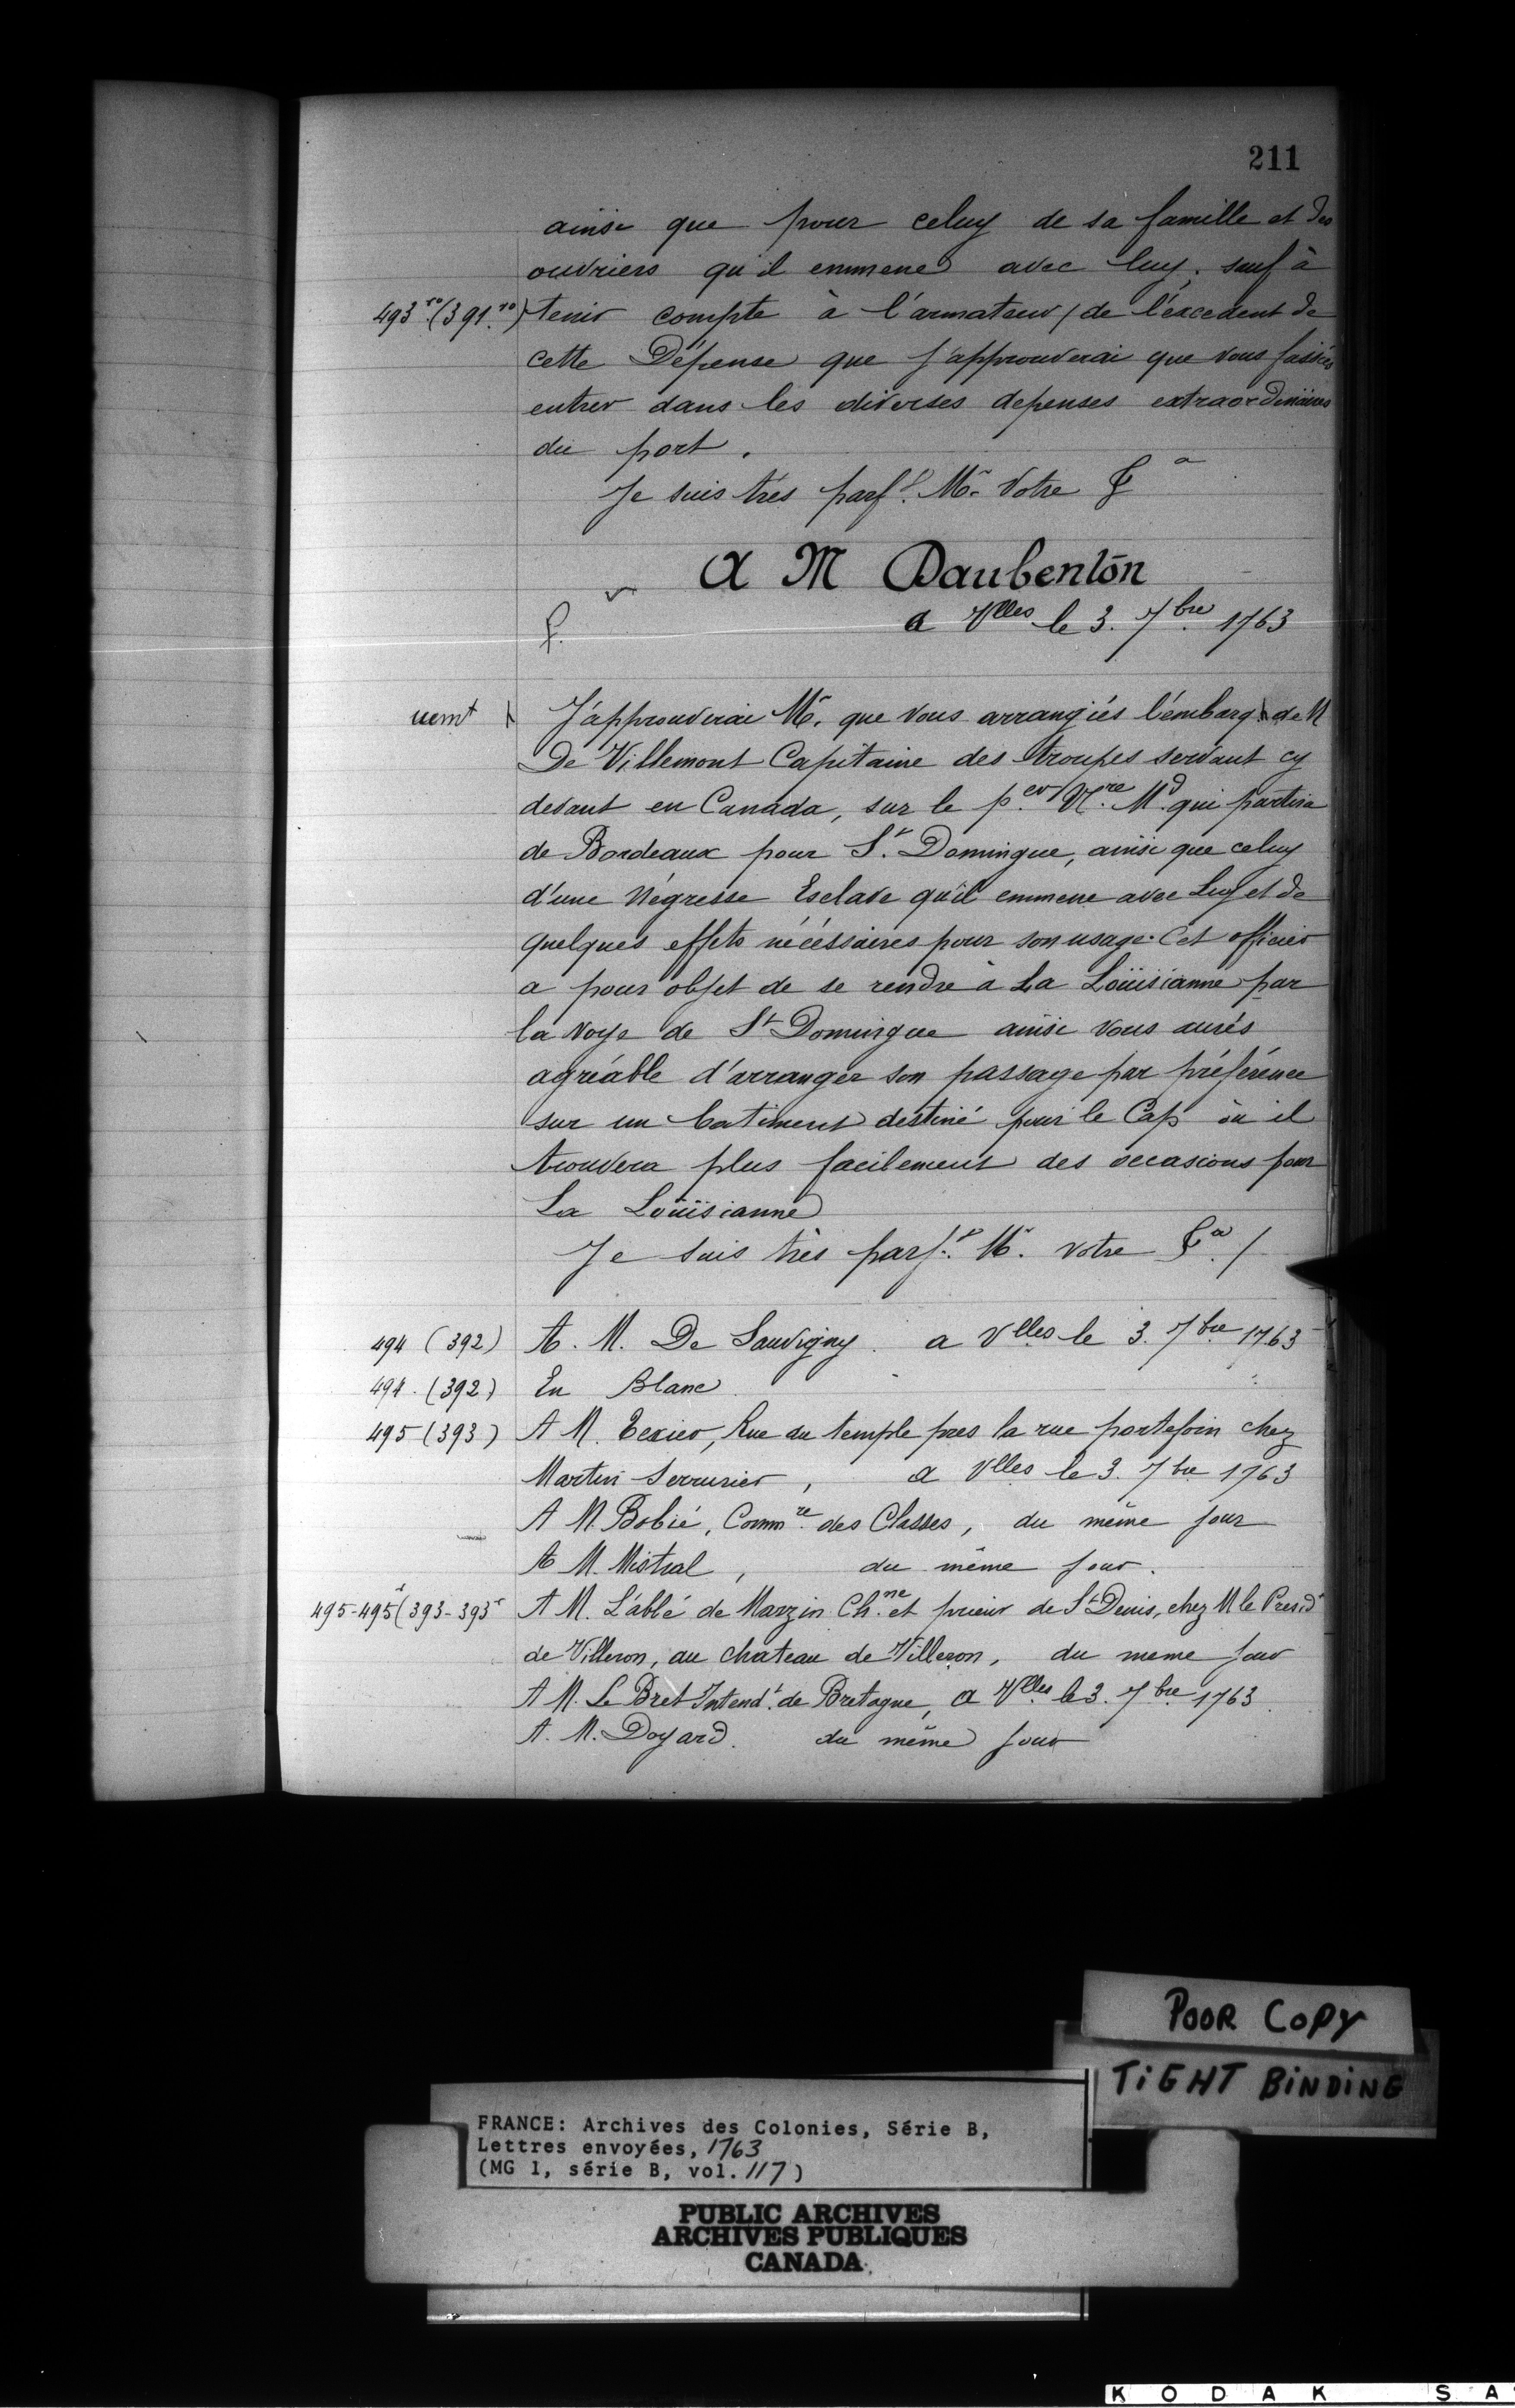 211
ainsi que pour celuy de sa famille et des
ouvriers qu'il emmene avec luy. sauf à
493ro (391.ro) tenir compte à l'armateur / de l'éxcedent de
cette Dépense que j'approuverai que vous fassiés
entrer dans les diverses depenses extraordinaires
du port.
Je suis très parft. Mr. Votre &a
A M Daubenton
a Vlles le 3. 7bre 1763
J'approuverai Mr. que vous arrangiés l'embarq de M
uemt
De Villemont Capitaine des troupes servant cy
devant en Canada, sur le p.er N.re M.d qui partira
de Bordeaux pour St. Domingue, ainsi que celuy
d'une Négresse Esclave qu'il emmene avec Luy et de
quelques effets nécéssaires pour son usage. Cet officier
a pour objet de se rendre à La Loüisianne par
la voye de St Domingue ainsi vous aurés
agréable d'arranger son passage par préférence
sur un batiment destiné pour le Cap où il
trouvera plus facilement des occasions pour
La Loüisianne
Je suis très parf.t Mr. votre &a. /
494 (392) A. M. De Sauvigny. a Vlles le 3. 7bre 1763
494. (392) En Blanc.
495 (393) A M. Texier, Rue du temple pres la rue portefoin chez
Martin Serrurier, a Vlles le 3. 7bre 1763
A M. Bobié, Commre. des Classes, du même jour
A M. Mistral, du même jour.
495-495 (393-393 A M. L'abbé de Marzin Ch.ne et prieur de St Denis, chez M le Presidt
de Villeron, au chateau de Villeron, du meme jour
A M. Le Bret Intendt. de Bretagne, a Vlles le 3. 7bre 1763.
A. M. Doyard. du même jour
POOR COPY
TIGHT BINDING
FRANCE: Archives des Colonies, Série B,
Lettres envoyées, 1763
(MG 1, série B, vol. 117)
PUBLIC ARCHIVES
ARCHIVES PUBLIQUES
CANADA
KODAK SA